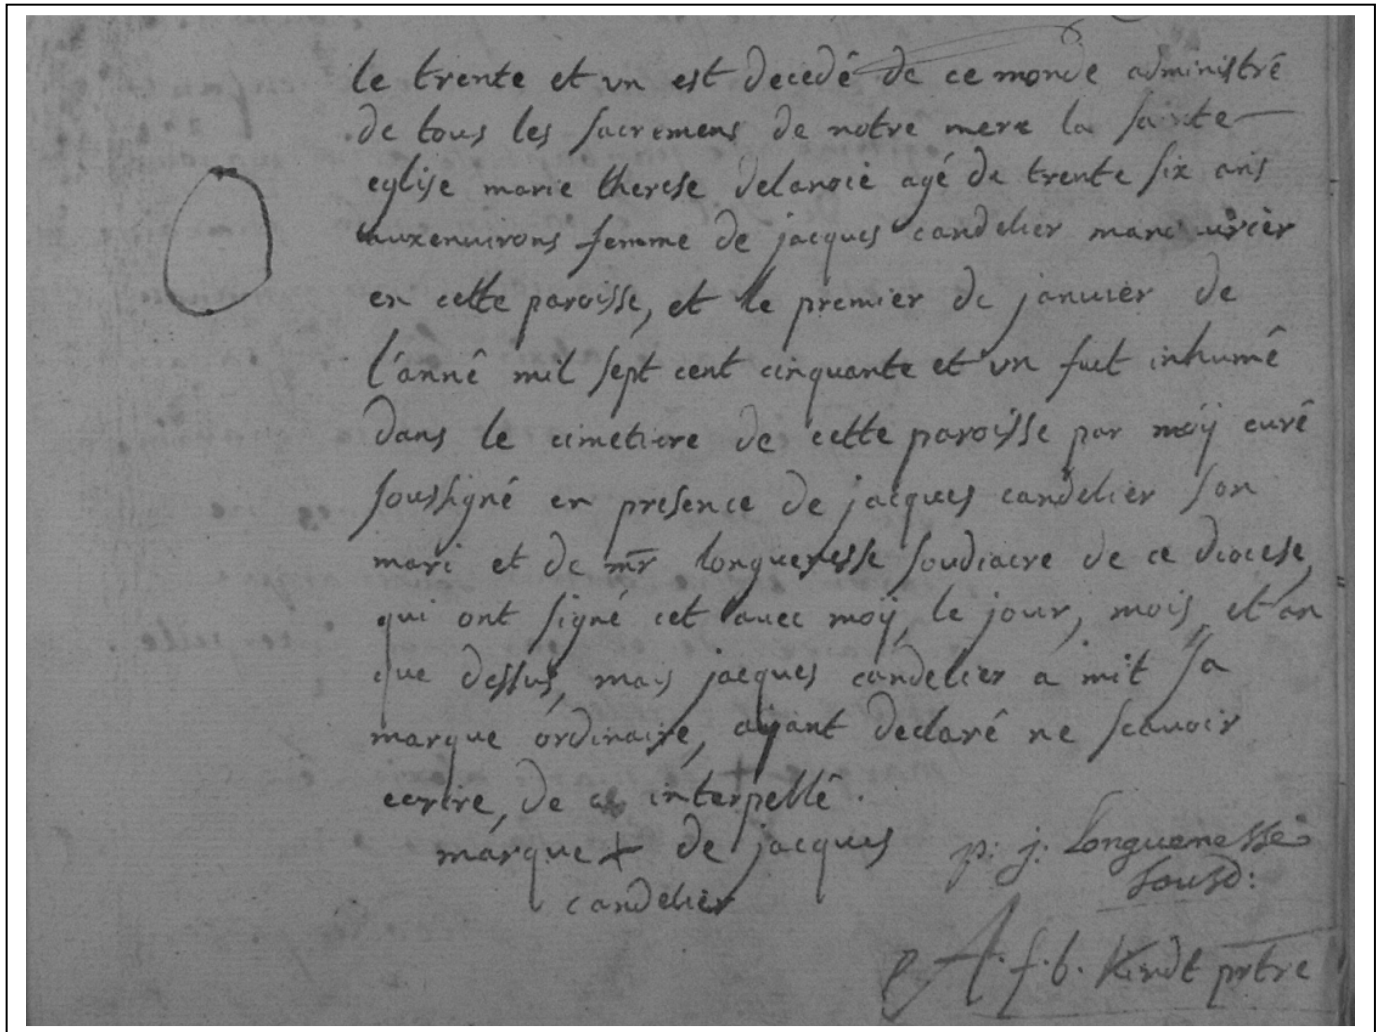 le trente et vn est decedé de ce monde administrê
de tous les sacremens de notre mere la sainte
eglise marie therese delanoië agé de trente six ans
auxenuirons femme de jacques candelier
en cette paroisse, et le premier de januier de
l'annê mil sept cent cinquante et vn fut inhumê
dans le cimetiere de cette paroisse par moÿ curê
soussigné en presence de jacques candelier son
mari et de mr longuenesse soudiacre de ce diocese,
qui ont signé cet auec moÿ, le jour, mois, et an
que dessus, mais jacques candelier a mit sa
marque ordinaire, aÿant declarê ne scauoir
ecrire, de ce interpellê.
marque + de jacques
candelier
p: j: Longuenesse
sousd:
A. f. b. Kindt prtre